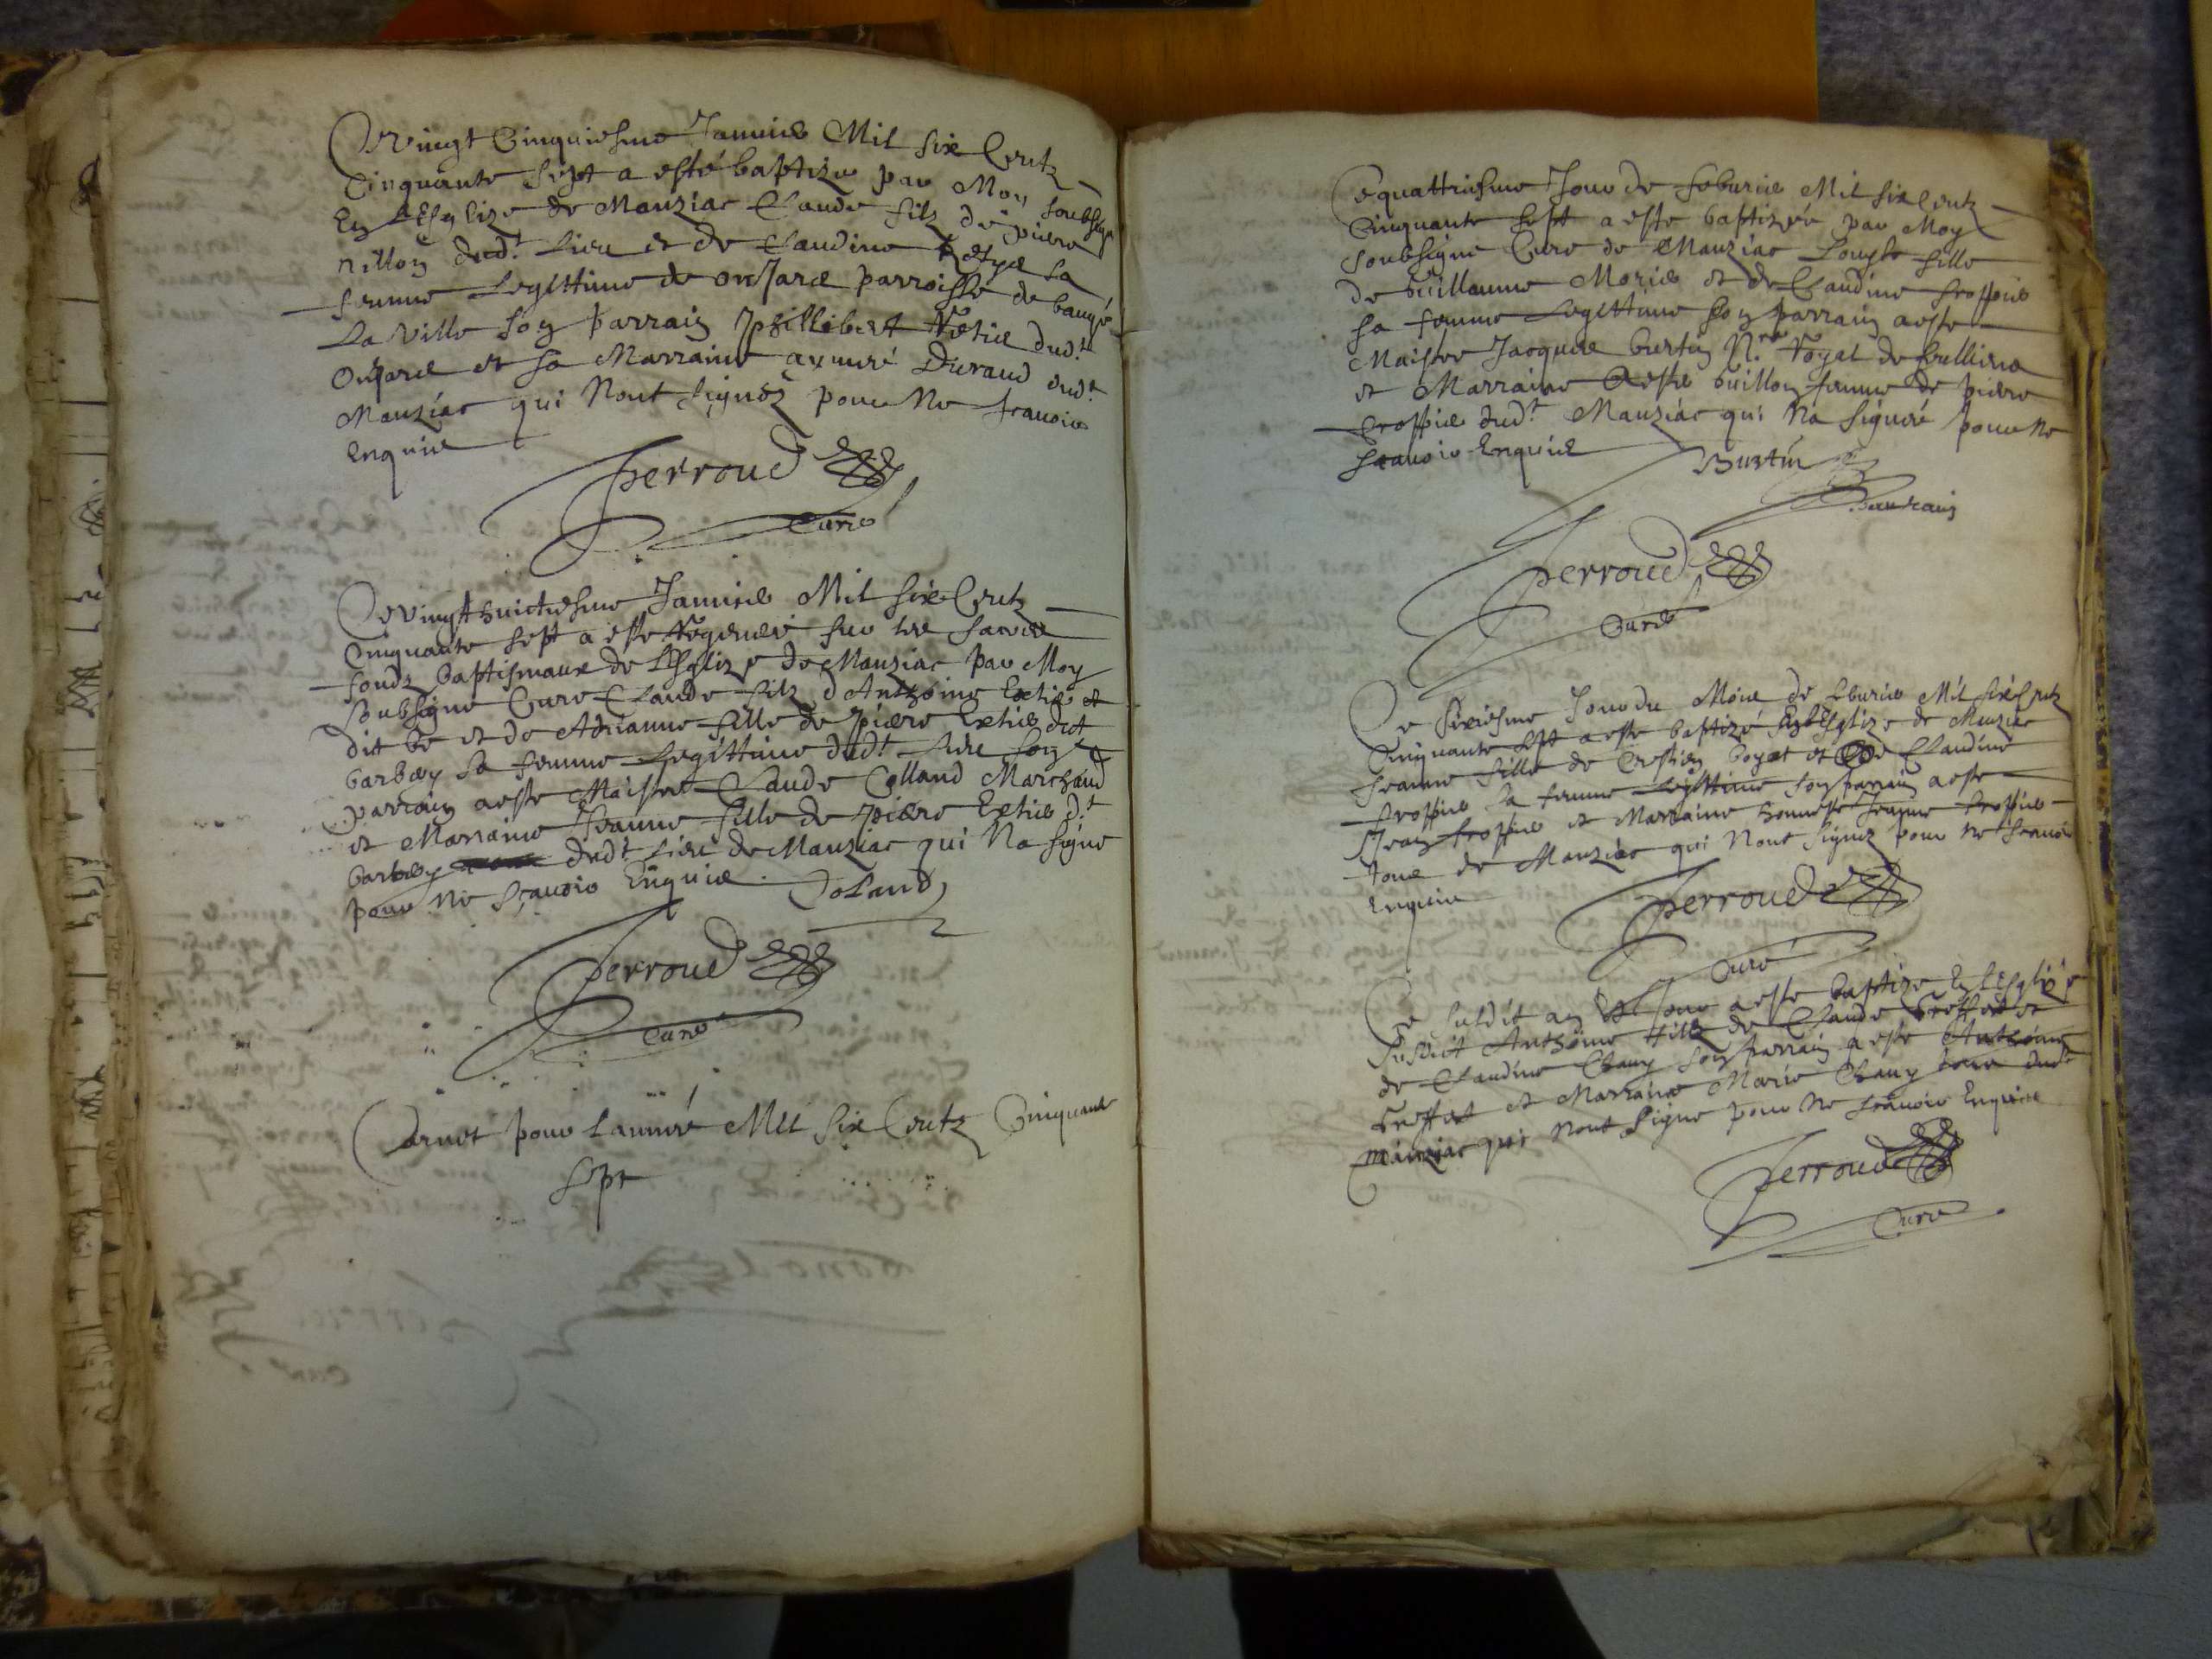 Ce vingt Cinquiesme Januier Mil six Centz
Cinquante sept a esté baptize par Moy soubsigne
En LEsglize de Manziac Claude filz de piere
nillon dud.t Lieu et de Claudine Retye sa
femme Legittime de parroisse de baugé
La ville son parrain phillibert dud.t
et sa Marraine aymeé Durand dud.t
Manziac qui Nont signéz pour Ne scauoir
Enquis
Perroud
Curé
Ce vingt huictiesme Januier Mil six Centz
Cinquante sept a este Regeneré sur les sacrez
fondz baptismaux de LEsglize de Manziac par Moy
soubsigne Cure Claude filz d Anthoine et
dit be et de Adrianne fille de piere dict
barbery sa femme Legittime dud.t Lieu son
parrain a este Maistre Claude Colland Marchand
et Marraine Jeanne fille de piere d.t
barbery dud.t Lieu de Manziac qui Na signe
pour Ne sçauoir Enquise. Coland
Perroud
Curé
Carnet pour Lanneé Mil six Centz Cinquante
sept
Ce quattriesme Jour de feburier Mil six Centz
Cinquante sept a este baptizeé par Moy
soubsigne Cure de Manziac Louyse fille
de Guillaume Morier et de Claudine
sa femme Legittime son parrain a este
Maistre Jacques burtin N.re Royal de
et Marraine Guillon femme de piere
dud.t Manziac qui Na signeé pour Ne
scauoir Enquise
Burtin
parrain
Perroud
Curé
Ce sixiesme Jour du Mois de feburier Mil six Centz
Cinquante sept a este baptizé En LEsglize de Manziac
Jeanne fille de boyat et de Claudine
sa femme Legittime son parrain a este
Jean et Marraine honneste Jeanne
tous de Manziac qui Nont signez pour Ne scauoir
Enquis
Perroud
Curé
Ce susdit an et Jour a este baptize En LEsglize
susdit Anthoine filz de Claude et
de Claudine Chany son parrain a este Anthoine
et Marraine Marie Chany tous dud.t
Manziac qui Nont signe pour Ne scauoir Enquis
Perroud
Curé